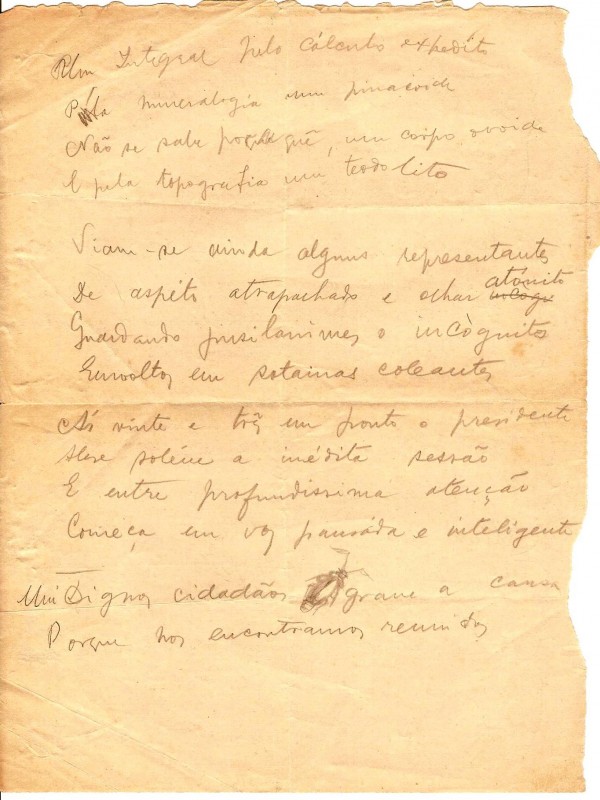 Um Integral pelo cálculo expedito
Pela mineralogia um pinacoide
Não se sabe porquê, um corpo ovoide
E pela topografia um teodolito
Viam-se ainda alguns representantes
De aspéto atrapachado e olhar atónito
Guardando pusilanimes o incògnito
Envoltos em sotainas coleantes
Ás vinte e três em ponto o presidente
Abre soléne a inédita sessão
E entre profundissima atenção
Começa em voz pausáda e inteligente
Mui Dignos cidadãos grave a causa
Porque nos encontramos reunidos